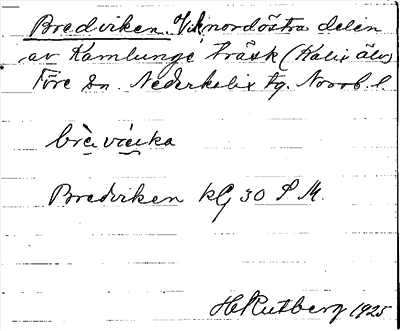 Bredviken. Vik nordöstra delen
av Kamlunge träsk (Kalix älv)
Töre sn. Nederkalix tg. Norrb. l.
brèvieka
Bredviken kG 30 S M.
H Rutberg 1925